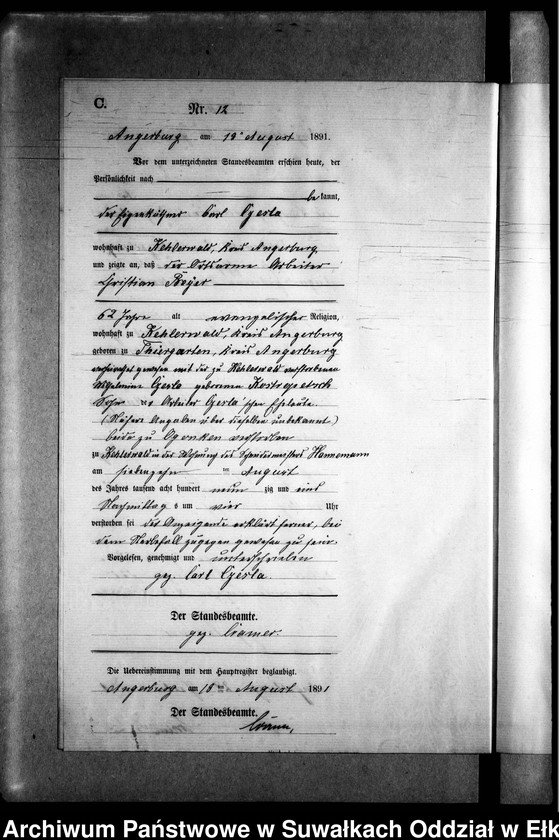 C.
Nr. 12
Angerburg am 18 ten August 1891.
Vor dem unterzeichneten Standesbeamten erschien heute, der
Persönlichkeit nach
bekannt,
der Eigenkäthner Carl
wohnhaft zu Kehlerwald, Kreis Angerburg
und zeigte an, daß der Ortsarme Arbeiter
Christian
62 Jahre alt evangelischer Religion,
wohnhaft zu Kehlerwald, Kreis Angerburg
geboren zu Thiergarten, Kreis Angerburg
gewesen mit der zu Kehlerwald verstorbenen
Wilhelmine geborenen
Sohn der Arbeiter Eheleute
(Nähere Angaben über dieselben unbekannt)
beide zu Ogonken verstorben
zu Kehlerwald in der Wohnung des Hannemann
am siebenzehn ten August
des Jahres tausend acht hundert neun zig und eins
Nachmittags um vier Uhr
verstorben sei der Anzeigende erklärt ferner, bei
dem Sterbefall zugegen gewesen zu sein
Vorgelesen, genehmigt und unterschrieben
gez. Carl
Der Standesbeamte.
gez. Cramer.
Die Uebereinstimmung mit dem Hauptregister beglaubigt.
Angerburg am 18 ten August 1891
Der Standesbeamte.
Archiwum Państwowe w Suwałkach Oddział w Ełk